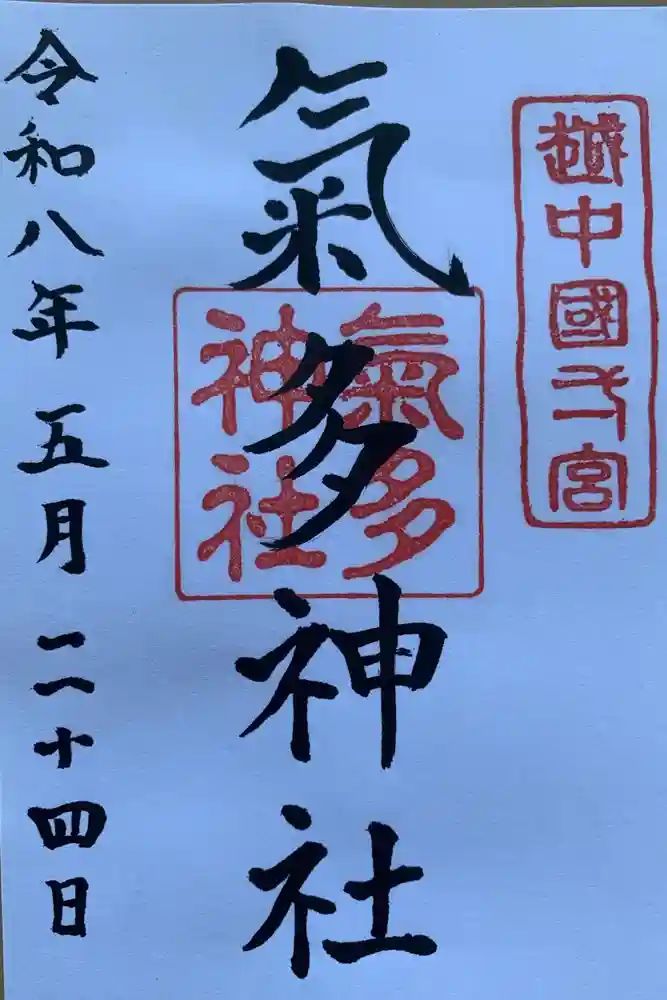 越中國一宮
氣多神社
氣多
神社
令和八年五月二十四日